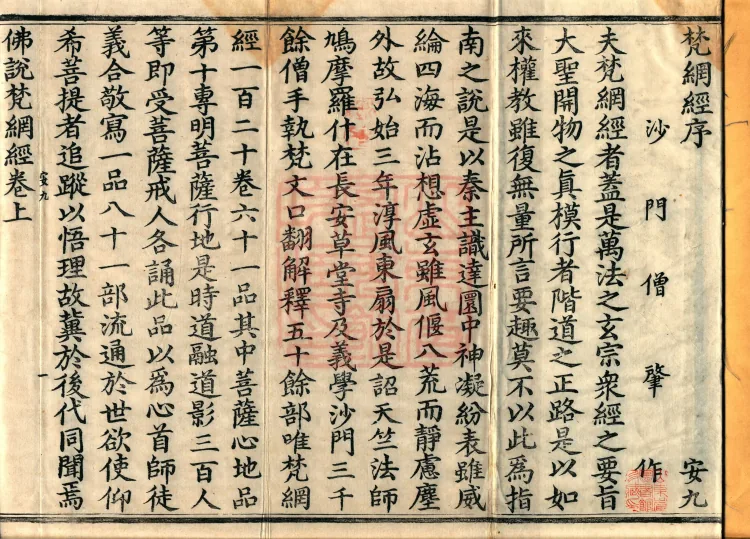 梵網經序 安九
沙門僧肇作
夫梵網經者蓋是萬法之玄宗衆經之要旨
大聖開物之眞模行者階道之正路是以如
來權教雖復無量所言要趣莫不以此爲指
南之說是以秦主識達圜中神凝紛表雖威
綸四海而沾想虛玄雖風偃八荒而靜慮塵
外故弘始三年淳風東扇於是詔天竺法師
鳩摩羅什在長安草堂寺及義學沙門三千
餘僧手執梵文口翻解釋五十餘部唯梵網
經一百二十卷六十一品其中菩薩心地品
第十專明菩薩行地是時道融道影三百人
等即受菩薩戒人各誦此品以爲心首師徒
義合敬寫一品八十一部流通於世欲使仰
希菩提者追蹤以悟理故冀於後代同聞焉
安九 一
佛說梵網經卷上